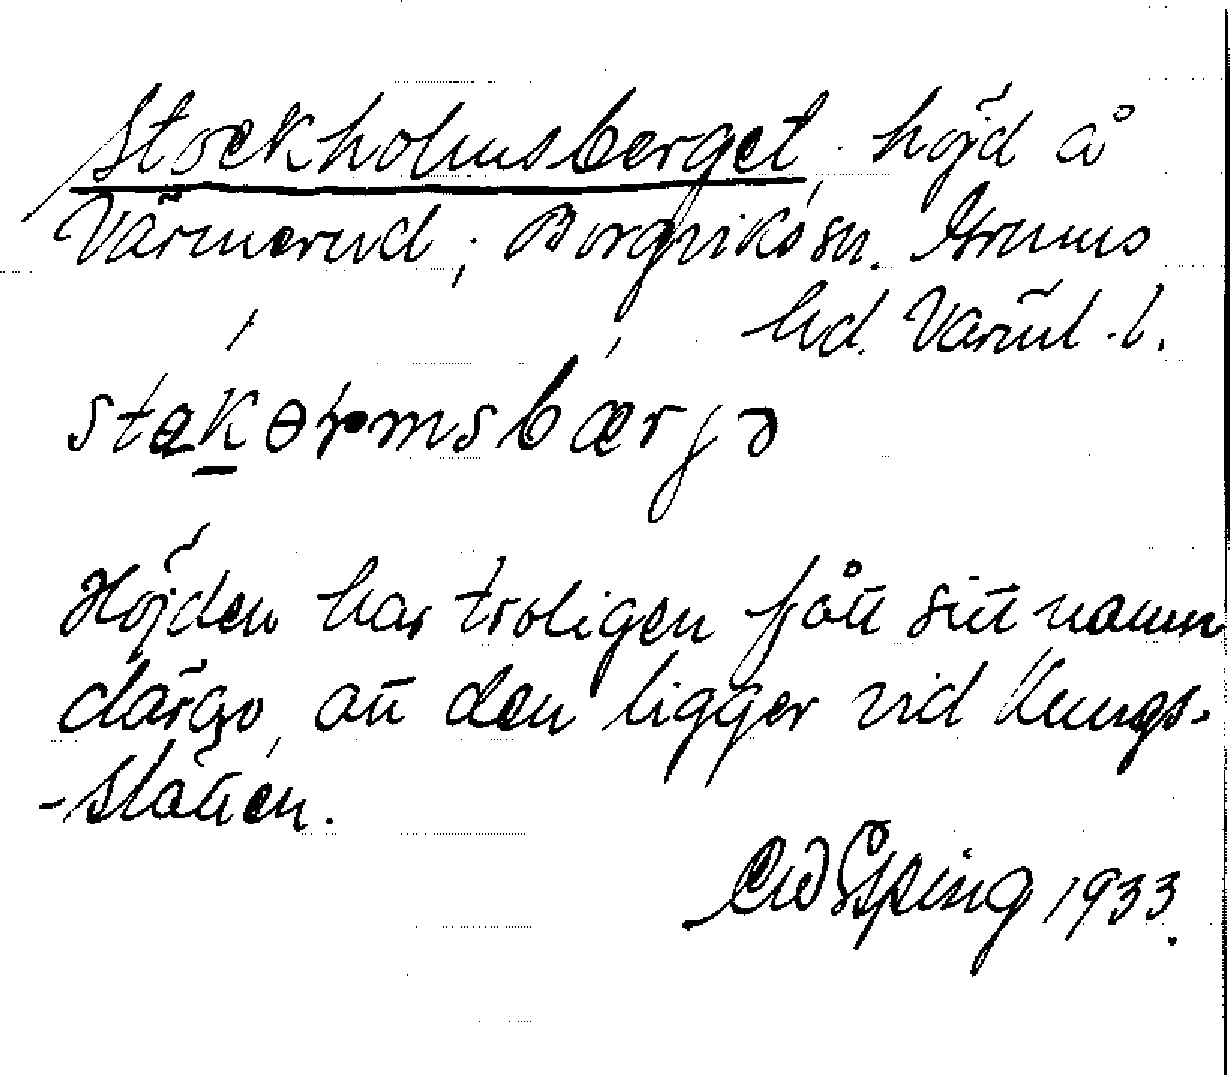 Stockholmsberget, höjd å
Värmerud, Borgviks sn. Grums
hd. Värml. l.
Höjden har troligen fått sitt namn
därav, att den ligger vid Kungs-
-slätten.
EW Epping 1933.